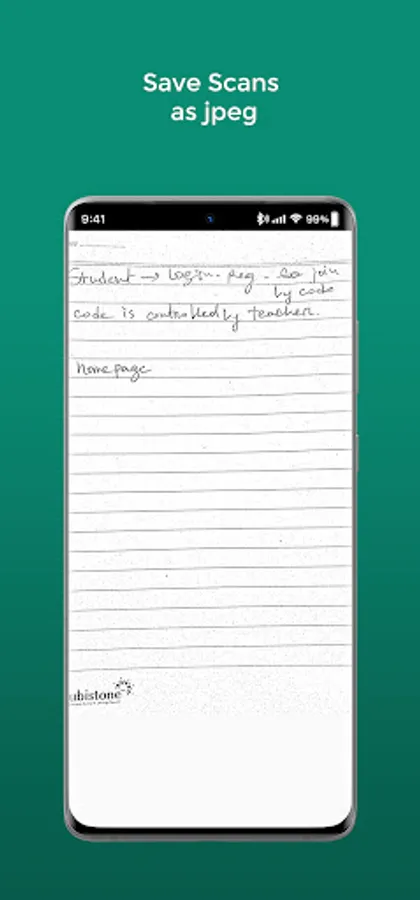 Save Scans
as jpeg
9:41
99%
Student → Login - Reg - to join
by code
code is controlled by teacher.
home page
ubistone